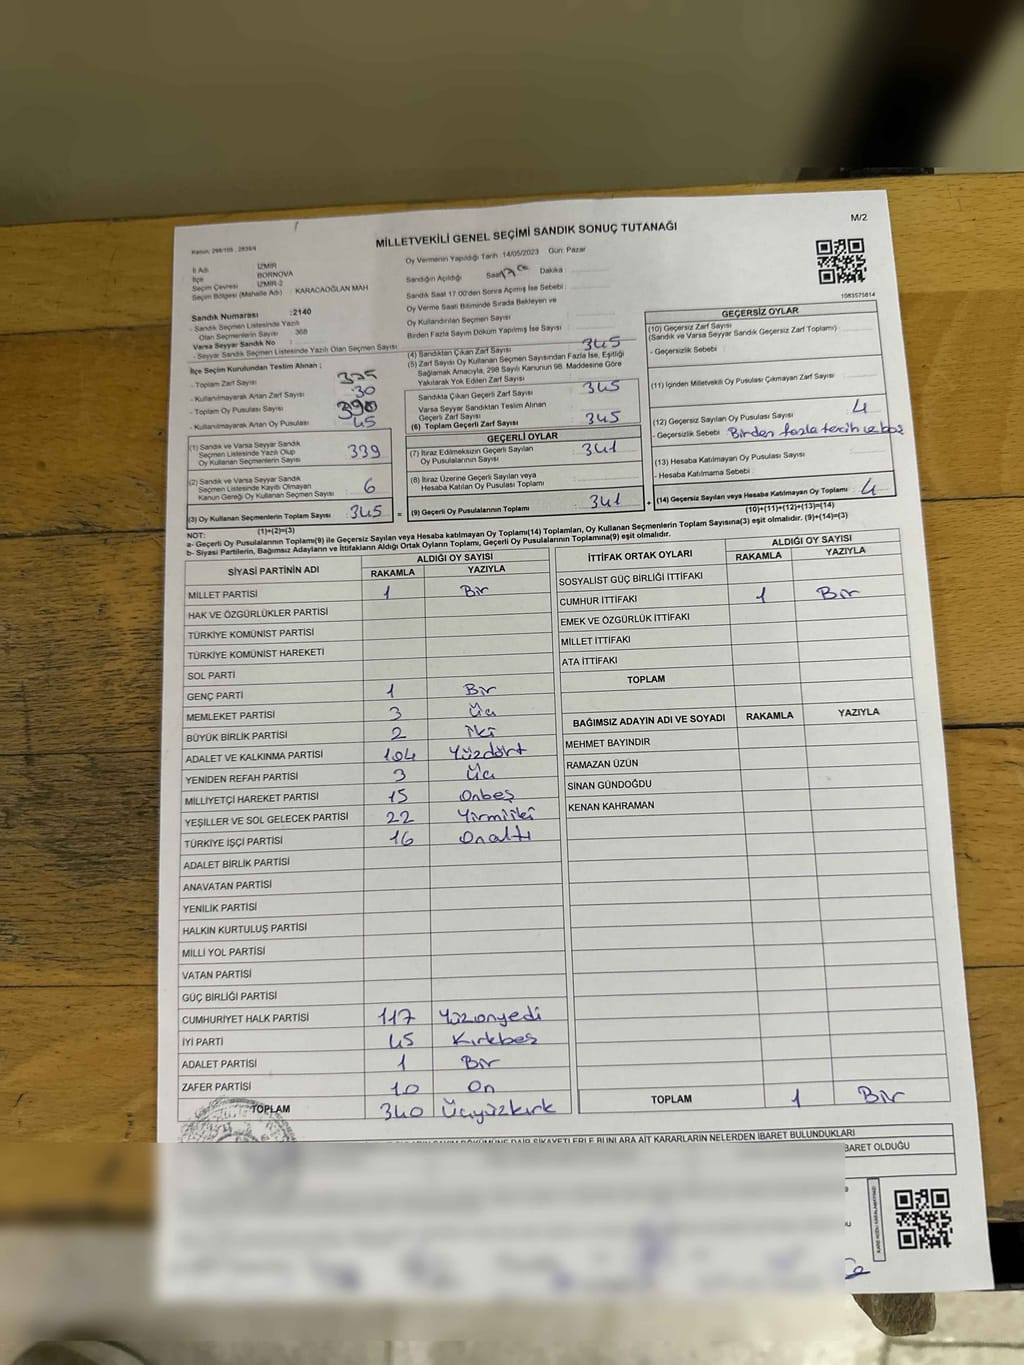 M/2
MİLLETVEKİLİ GENEL SEÇİMİ SANDIK SONUÇ TUTANAĞI
Kanun: 298/105 , 2839/4
İl Adı : İZMİR
İlçe : BORNOVA
Seçim Çevresi : İZMİR-2
Seçim Bölgesi (Mahalle Adı) : KARACAOĞLAN MAH
Sandık Numarası :2140
- Sandık Seçmen Listesinde Yazılı
Olan Seçmenlerin Sayısı : 368
Varsa Seyyar Sandık No :
- Seyyar Sandık Seçmen Listesinde Yazılı Olan Seçmen Sayısı
Oy Vermenin Yapıldığı Tarih :14/05/2023 Gün: Pazar
Sandığın Açıldığı Saat Dakika :
Sandık Saat 17:00'den Sonra Açımış İse Sebebi :
Oy Verme Saati Bitiminde Sırada Bekleyen ve
Oy Kullandırılan Seçmen Sayısı :
Birden Fazla Sayım Döküm Yapılmış İse Sayısı :
1083575814
İlçe Seçim Kurulundan Teslim Alınan ;
- Toplam Zarf Sayısı :
- Kullanılmayarak Artan Zarf Sayısı : 30
- Toplam Oy Pusulası Sayısı : 390
- Kullanılmayarak Artan Oy Pusulası : 45
(1) Sandık ve Varsa Seyyar Sandık
Seçmen Listesinde Yazılı Olup
Oy Kullanan Seçmenlerin Sayısı : 339
(2) Sandık ve Varsa Seyyar Sandık
Seçmen Listesinde Kayıtlı Olmayan
Kanun Gereği Oy Kullanan Seçmen Sayısı : 6
(3) Oy Kullanan Seçmenlerin Toplam Sayısı : 345 =
(1)+(2)=(3)
(4) Sandıktan Çıkan Zarf Sayısı : 345
(5) Zarf Sayısı Oy Kullanan Seçmen Sayısından Fazla İse, Eşitliği
Sağlamak Amacıyla, 298 Sayılı Kanunun 98. Maddesine Göre
Yakılarak Yok Edilen Zarf Sayısı :
Sandıkta Çıkan Geçerli Zarf Sayısı : 345
Varsa Seyyar Sandıktan Teslim Alınan
Geçerli Zarf Sayısı :
(6) Toplam Geçerli Zarf Sayısı : 345
GEÇERLİ OYLAR
(7) İtiraz Edilmeksizin Geçerli Sayılan
Oy Pusulalarının Sayısı : 341
(8) İtiraz Üzerine Geçerli Sayılan veya
Hesaba Katılan Oy Pusulası Toplamı :
(9) Geçerli Oy Pusulalarının Toplamı : 341 +
GEÇERSİZ OYLAR
(10) Geçersiz Zarf Sayısı
(Sandık ve Varsa Seyyar Sandık Geçersiz Zarf Toplamı) :
- Geçersizlik Sebebi :
(11) İçinden Milletvekili Oy Pusulası Çıkmayan Zarf Sayısı :
(12) Geçersiz Sayılan Oy Pusulası Sayısı : 4
- Geçersizlik Sebebi : Birden fazla tercih ve boş
(13) Hesaba Katılmayan Oy Pusulası Sayısı :
- Hesaba Katılmama Sebebi :
(14) Geçersiz Sayılan veya Hesaba Katılmayan Oy Toplamı : 4
(10)+(11)+(12)+(13)=(14)
NOT:
a- Geçerli Oy Pusulalarının Toplamı(9) ile Geçersiz Sayılan veya Hesaba katılmayan Oy Toplamı(14) Toplamları, Oy Kullanan Seçmenlerin Toplam Sayısına(3) eşit olmalıdır. (9)+(14)=(3)
b- Siyasi Partilerin, Bağımsız Adayların ve İttifakların Aldığı Ortak Oyların Toplamı, Geçerli Oy Pusulalarının Toplamına(9) eşit olmalıdır.
SİYASİ PARTİNİN ADI ALDIĞI OY SAYISI
RAKAMLA YAZIYLA
MİLLET PARTİSİ 1 Bir
HAK VE ÖZGÜRLÜKLER PARTİSİ
TÜRKİYE KOMÜNİST PARTİSİ
TÜRKİYE KOMÜNİST HAREKETİ
SOL PARTİ
GENÇ PARTİ 1 Bir
MEMLEKET PARTİSİ 3 Üç
BÜYÜK BİRLİK PARTİSİ 2 İki
ADALET VE KALKINMA PARTİSİ 104 Yüzdört
YENİDEN REFAH PARTİSİ 3 Üç
MİLLİYETÇİ HAREKET PARTİSİ 15 Onbeş
YEŞİLLER VE SOL GELECEK PARTİSİ 22 Yirmiiki
TÜRKİYE İŞÇİ PARTİSİ 16 Onaltı
ADALET BİRLİK PARTİSİ
ANAVATAN PARTİSİ
YENİLİK PARTİSİ
HALKIN KURTULUŞ PARTİSİ
MİLLİ YOL PARTİSİ
VATAN PARTİSİ
GÜÇ BİRLİĞİ PARTİSİ
CUMHURİYET HALK PARTİSİ 117 Yüzonyedi
İYİ PARTİ 45 Kırkbeş
ADALET PARTİSİ 1 Bir
ZAFER PARTİSİ 10 On
TOPLAM 340 Üçyüzkırk
İTTİFAK ORTAK OYLARI ALDIĞI OY SAYISI
RAKAMLA YAZIYLA
SOSYALİST GÜÇ BİRLİĞİ İTTİFAKI
CUMHUR İTTİFAKI 1 Bir
EMEK VE ÖZGÜRLÜK İTTİFAKI
MİLLET İTTİFAKI
ATA İTTİFAKI
TOPLAM
BAĞIMSIZ ADAYIN ADI VE SOYADI RAKAMLA YAZIYLA
MEHMET BAYINDIR
RAMAZAN ÜZÜN
SİNAN GÜNDOĞDU
KENAN KAHRAMAN
TOPLAM 1 Bir
DÖKÜMÜNE DAİR ŞİKAYETLERLE BUNLARA AİT KARARLARIN NELERDEN İBARET BULUNDUKLARI
İBARET OLDUĞU